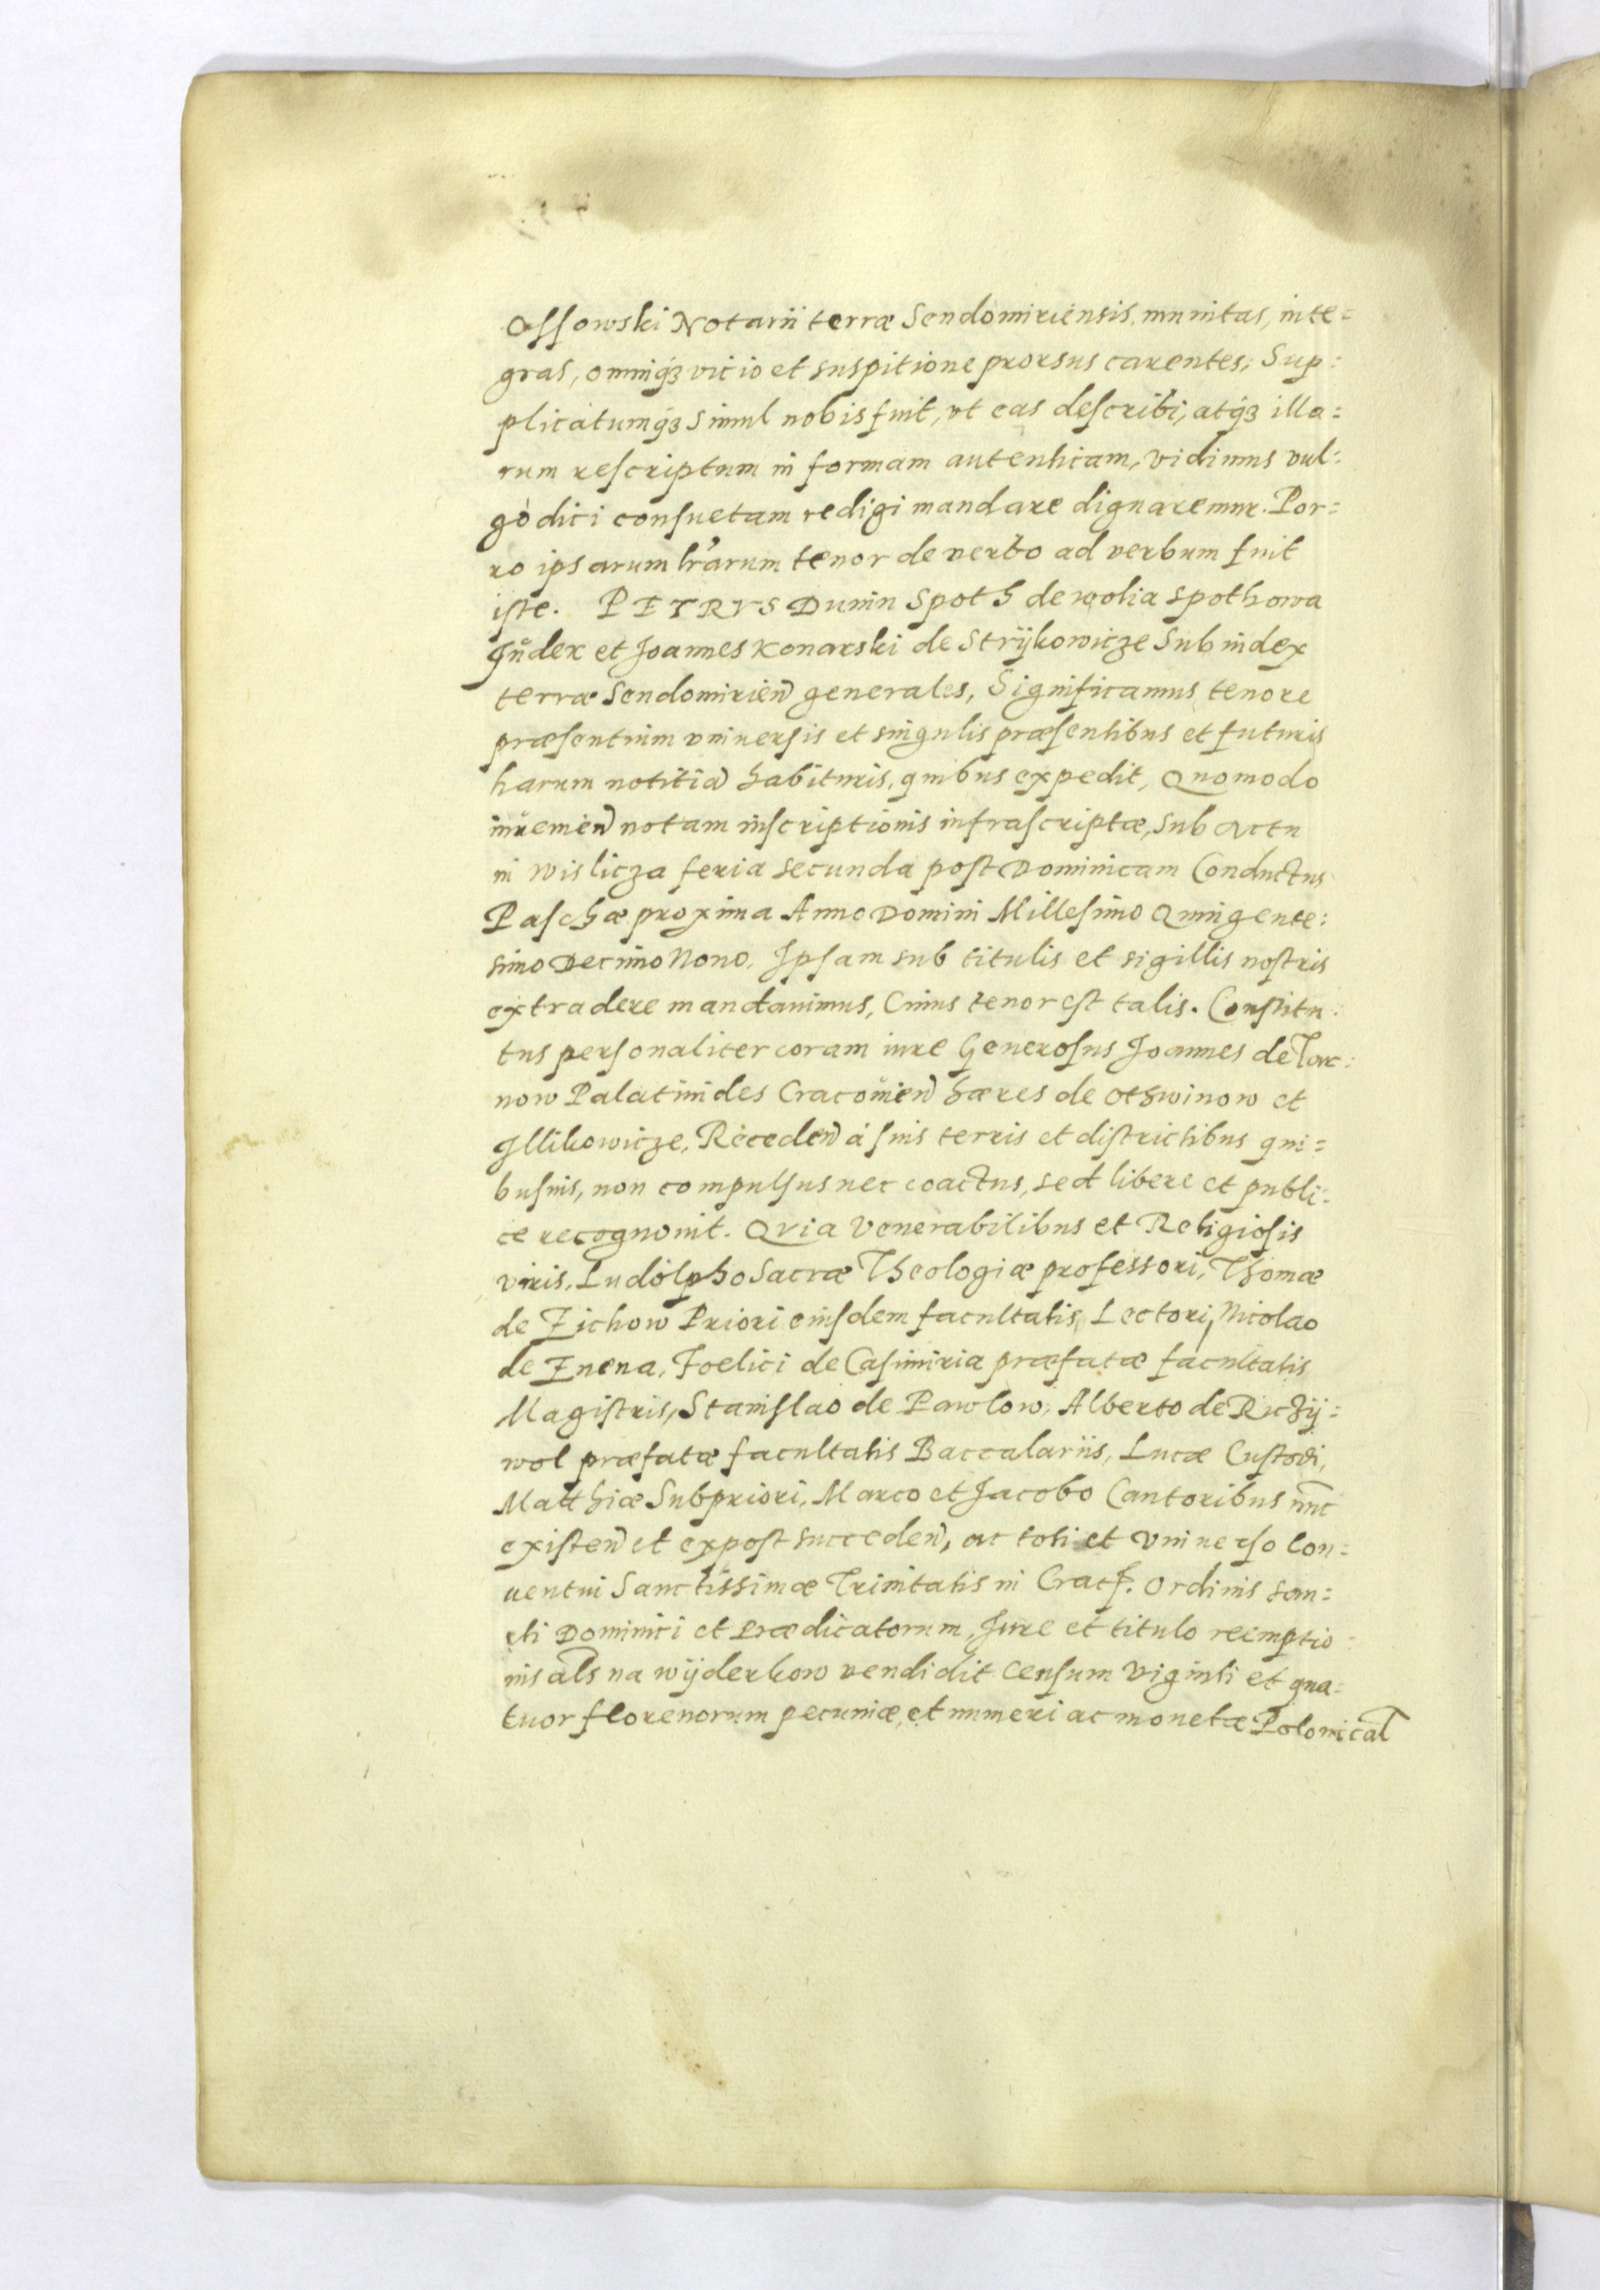 Ossowski Notarii terræ Sendomiriensis munitas, inte=
gras, omniqʒ vicio et suspitione prorsus carentes, Sup=
plicatumqʒ simul nobis fuit, vt eas describi, atqʒ illa=
rum rescriptum in formam autenticam, vidimus vul=
gò dici consuetam redigi mandare dignaremur. Por=
ro ipsarum lrarum tenor de verbo ad verbum fuit
iste. PETRVS Dunin Spoth de wolia spothowa
Iudex et Joannes Konarski de Strÿkowicze Subiudex
terræ Sendomirien generales, Significamus tenore
præsentium vniuersis et singulis præsentibus et futuris
harum notitia habituris, quibus expedit, Quomodo
inuremen notam inscriptionis infrascriptæ, sub Actu
in wislicza feria secunda post Dominicam Conductus
Paschæ proxima Anno Domini Millesimo Quingente=
simo Decimo Nono. Ipsam sub titulis et sigillis nostris
extradere mandauimus, Cuius tenor est talis. Constitu=
tus personaliter coram iure Generosus Joannes de Tar=
now Palatinides Cracouien hæres de Othwinow et
Illikowicze, Receden à suis terris et districtibus qui=
busuis, non compulsus nec coactus, sed libere et publi=
ce recognouit. Qvia Venerabilibus et Religiosis
viris, Ludolpho Sacræ Theologiæ professori, Thomæ
de Zichow Priori eiusdem facultatis, Lectori, Nicolao
de Znena, Foelici de Casimiria præfatæ facultatis
Magistris, Stanislao de Pawlow, Alberto de Riczÿ=
wol præfatæ facultatis Baccalariis, Lucæ Custodi,
Matthiæ Subpriori, Marco et Jacobo Cantoribus nunc
existen et expost succeden, ac toti et vniuerso Con=
uentui Sanctissimæ Trinitatis in Crac. Ordinis san=
cti Dominici et Prædicatorum, Jure et titulo reemptio=
nis als na wÿderkow vendidit Censum viginti et qua=
tuor florenorum pecuniæ, et numeri ac monetæ Polonical